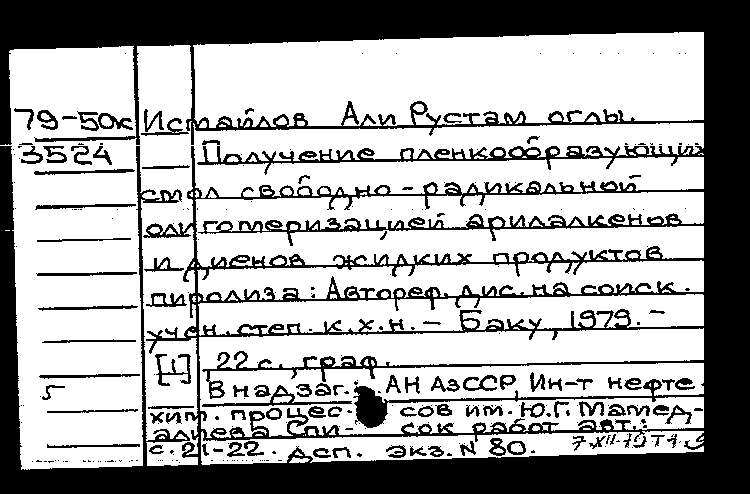 79-50к Исмайлов Али Рустам оглы.
3524 Получение пленкообразующих
смол свободно-радикальной
олигомеризацией арилалкенов
и диенов жидких продуктов
пиролиза: Автореф. дис. на соиск.
учен. степ. к.х.н. - Баку, 1979. -
[1] 22 с., граф.
5 В надзаг.: АН АзССР, Ин-т нефте-
хим. процес- сов им. Ю.Г. Мамед-
алиева. Спи- сок работ авт.:
с. 21-22. Дсп. Экз. N 80.